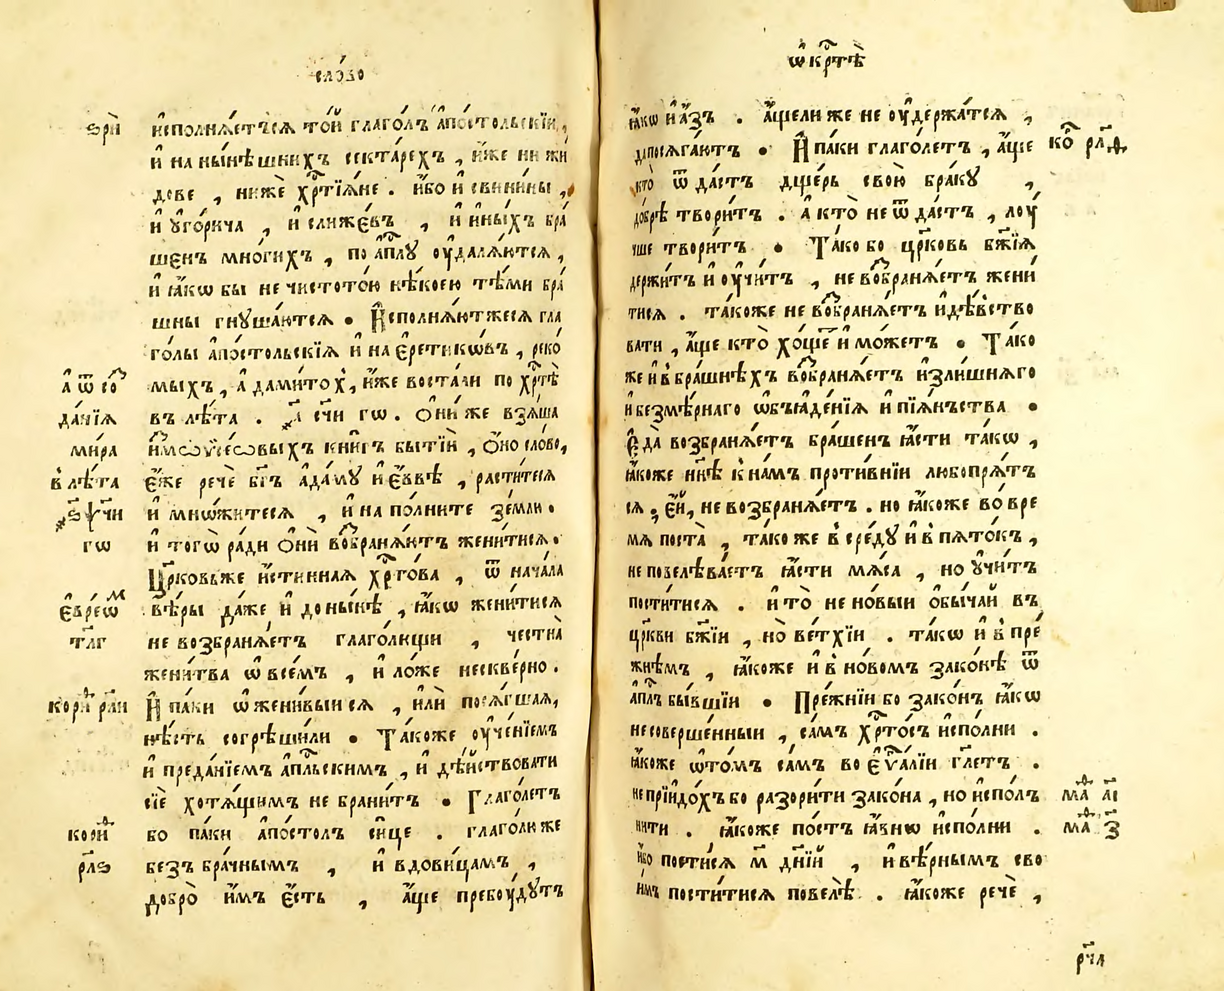 сло́во
ѕр҃и
исполнѧ́етьсѧ то́й глаго́лъ апо́стольскїи,
и на ны́нѣшнихъ сектарехъ, и́же ни жи
дове, нижѐ хрⷭ҇тїѧ́не. и́бо и свинины,
и ꙋго́рича, и слижє́въ, и и́ныхъ бра́
шенъ мно́гихъ, по апⷭ҇лꙋ оу҆далѧ́ютсѧ,
и ꙗ́кѡ бы не чистото́ю нѣ́коею тѣ́ми бра́
шны гнꙋша́ютсѧ. Исполнѧ́ютжесѧ гла
го́лы апо́стольскїѧ и на є҆ретикѡ́въ, реко
мыхъ, а дамито́х, и́же воста́ли по хрⷭ҇тѣ
въ лѣ́та. ҂а сч҃и гѡ. Ѻни́ же взѧ́ша
и҆мѡѷсе́ѡвыхъ кни́гъ бытїй, ѻ҆́но сло́во,
є҆́же речѐ бг҃ъ ада́мꙋ и є҆́ввѣ, расти́тисѧ
и мнѡ́житесѧ, и на по́лните зе́млю.
и тогѡ̀ ра́ди ѻ҆нѝ возбранѧ́ютъ жени́тисѧ.
Цр҃ковьже и́стиннаѧ хрⷭ҇то́ва, ѿ нача́ла
вѣ́ры да́же и до ны́нѣ, ꙗ́кѡ жени́тисѧ
не возбранѧ́етъ глаго́лющи, честна̀
жени́тва ѡ всѣ́мъ, и ло́же нескве́рно.
И па́ки ѡ жени́выисѧ, и҆лѝ посѧ́гшаѧ,
нѣ́сть согрѣши́ли. Та́коже оу҆че́нїемъ
и преда́нїемъ апⷭ҇льскимъ, и дѣ́йствовати
сїѐ хотѧ́щимъ не брани́тъ. Глаго́летъ
бо па́ки апо́столъ си́це. глаго́лю же
безъ бра́чнымъ, и вдови́цамъ,
добро̀ и́мъ є́сть, а́ще пребꙋ́дꙋтъ
а ѿ соⷥ
да́нїѧ
ми́ра
в лѣ́та
҂ѕ ѱ҃чи
гѡ
є҆вре́ѡⷨ
тл҃г
кориⷩ҇ рл҃и
кориⷩ҇
рл҃ѕ
ѡ крⷭ҇тѣ̀
ꙗ́кѡ и а́зъ. а́щели же не оу҆держа́тсѧ,
да посѧга́ютъ. И па́ки глаго́летъ, а́ще
кто̀ ѿ да́стъ дще́рь свою̀ бра́кꙋ,
до́брѣ твори́тъ. а кто̀ не ѿ да́стъ, лоу́
чше твори́тъ. Та́ко бо цр҃ковь бж҃їѧ
держи́тъ и оу҆чи́тъ, не возбранѧ́етъ жени́
тисѧ. та́коже не возбранѧ́етъ и дѣ́вство
вати, а́ще кто̀ хо́щеⷮ и мо́жетъ. Та́ко
же и в бра́шнѣхъ возбранѧ́етъ изли́шнѧго
и безмѣ́рнаго ѡбъꙗде́нїѧ и пїѧ́ньства.
Є҆да̀ возбранѧ́етъ бра́шенъ ꙗ́сти та́кѡ,
ꙗ́коже нн҃ѣ к на́мъ проти́внїи любопрѧ́тъ
сѧ, є҆́й, не возбранѧ́етъ. но ꙗ́коже во вре́
мѧ поста̀, та́ко же в сре́дꙋ и в пѧто́къ,
не повелѣва́етъ ꙗ́сти мѧ́са, но ꙋчи́тъ
пости́тисѧ. и то̀ не но́выи ѻ҆бы́чай въ
цр҃кви бж҃їи, но̀ ве́тхїи. та́кѡ и в пре́
жнѣмъ, ꙗ́коже и в но́вомъ зако́нѣ ѿ
апⷭ҇лъ бы́вшїи. Пре́жнїи бо зако́нъ ꙗ́кѡ
несоверше́нныи, са́мъ хрⷭ҇то́съ испо́лни.
ꙗ́коже ѡто́мъ са́мъ во є҆ѵⷢ҇а́лїи гл҃етъ.
не прїидо́хъ бо разори́ти зако́на, но испо́л
нити. ꙗ́коже по́стъ ꙗ́внѡ испо́лни.
и́бо пости́сѧ м҃ дні́й, и вѣ́рнымъ сво
и́мъ пости́тисѧ повелѣ̀. ꙗ́коже речѐ,
маⷴ҇ аі
маⷴ҇ з҃
рч҃л